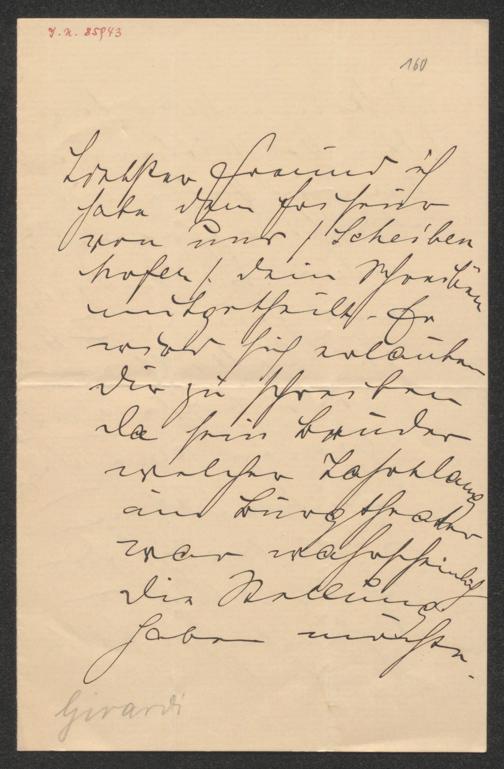 J.N. 85943
160
Liebster Freund ich
habe dem Friseur
von uns / Scheiben
hofer /. dein Schreiben
mitgetheilt. Er
wird sich erlauben
dir zu schreiben
da sein Bruder
welcher Jahrelang
am Burgtheater
war wahrscheinlich
die Stellung
haben möchte.
Girardi